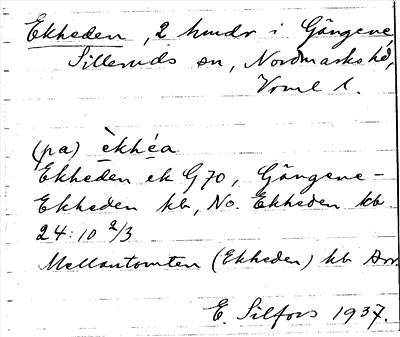 Ekheden, 2 hmdr i Gängene
Silleruds sn, Nordmarks hd,
Vrml l.
(pa) èkhéa
Ekheden ek G70, Gängene-
Ekheden kb, No. Ekheden kb
24:10 2/3
Mellantomten (Ekheden) kb
E. Silfors 1937.